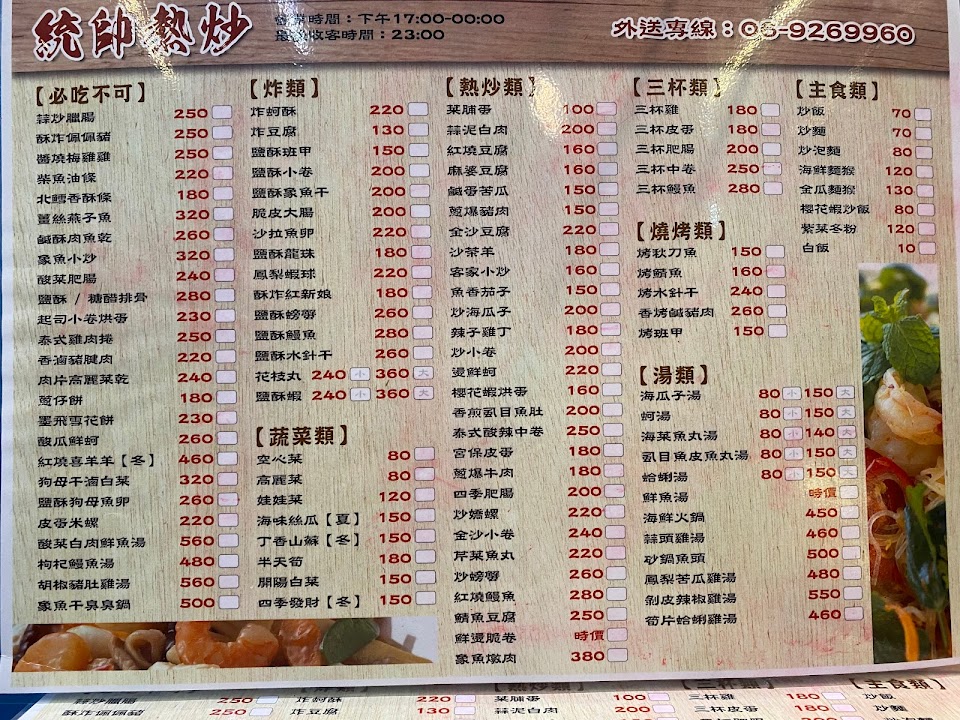 統帥熱炒
營業時間：下午17:00-00:00
最後收客時間：23:00
外送專線：06-9269960
【必吃不可】
蒜炒臘腸 250
酥炸佩佩豬 250
醬燒梅雞雞 250
柴魚油條 220
北鱈香酥條 180
薑絲燕子魚 320
鹹酥肉魚乾 260
象魚小炒 320
酸菜肥腸 240
鹽酥 / 糖醋排骨 280
起司小卷烘蛋 230
泰式雞肉捲 250
香滷豬腱肉 220
肉片高麗菜乾 240
蔥仔餅 180
墨飛雪花餅 230
酸瓜鮮蚵 260
紅燒喜羊羊【冬】 460
狗母干滷白菜 320
鹽酥狗母魚卵 260
皮蛋米螺 220
酸菜白肉鮮魚湯 560
枸杞鰻魚湯 480
胡椒豬肚雞湯 560
象魚干臭臭鍋 500
【炸類】
炸蚵酥 220
炸豆腐 130
鹽酥班甲 150
鹽酥小卷 200
鹽酥象魚干 200
脆皮大腸 200
沙拉魚卵 220
鹽酥龍珠 180
鳳梨蝦球 220
酥炸紅新娘 180
鹽酥螃蟹 260
鹽酥鰻魚 280
鹽酥水針干 260
花枝丸 240 小 360 大
鹽酥蝦 240 小 360 大
【蔬菜類】
空心菜 80
高麗菜 80
娃娃菜 120
海味絲瓜【夏】 150
丁香山蘇【冬】 150
半天筍 180
開陽白菜 150
四季發財【冬】 150
【熱炒類】
菜脯蛋 100
蒜泥白肉 200
紅燒豆腐 160
麻婆豆腐 160
鹹蛋苦瓜 150
蔥爆豬肉 150
金沙豆腐 220
沙茶羊 180
客家小炒 160
魚香茄子 150
炒海瓜子 200
辣子雞丁 180
炒小卷 200
燙鮮蚵 220
櫻花蝦烘蛋 160
香煎虱目魚肚 200
泰式酸辣中卷 250
宮保皮蛋 180
蔥爆牛肉 180
四季肥腸 200
炒嬌螺 220
金沙小卷 240
芹菜魚丸 220
炒螃蟹 260
紅燒鰻魚 280
鯖魚豆腐 250
鮮燙脆卷 時價
象魚燉肉 380
【三杯類】
三杯雞 180
三杯皮蛋 180
三杯肥腸 200
三杯中卷 250
三杯鰻魚 280
【燒烤類】
烤秋刀魚 150
烤鯖魚 160
烤水針干 240
香烤鹹豬肉 260
烤班甲 150
【湯類】
海瓜子湯 80 小 150 大
蚵湯 80 小 150 大
海菜魚丸湯 80 小 140 大
虱目魚皮魚丸湯 80 小 150 大
蛤蜊湯 80 小 150 大
鮮魚湯 時價
海鮮火鍋 450
蒜頭雞湯 460
砂鍋魚頭 500
鳳梨苦瓜雞湯 480
剝皮辣椒雞湯 550
筍片蛤蜊雞湯 460
【主食類】
炒飯 70
炒麵 70
炒泡麵 80
海鮮麵猴 120
金瓜麵猴 130
櫻花蝦炒飯 80
紫菜冬粉 120
白飯 10
蒜炒臘腸 250
酥炸佩佩豬 250
炸蚵酥 220
炸豆腐 130
菜脯蛋 100
蒜泥白肉 200
三杯雞 180
三杯皮蛋 180
【主食類】
炒飯
炒麵